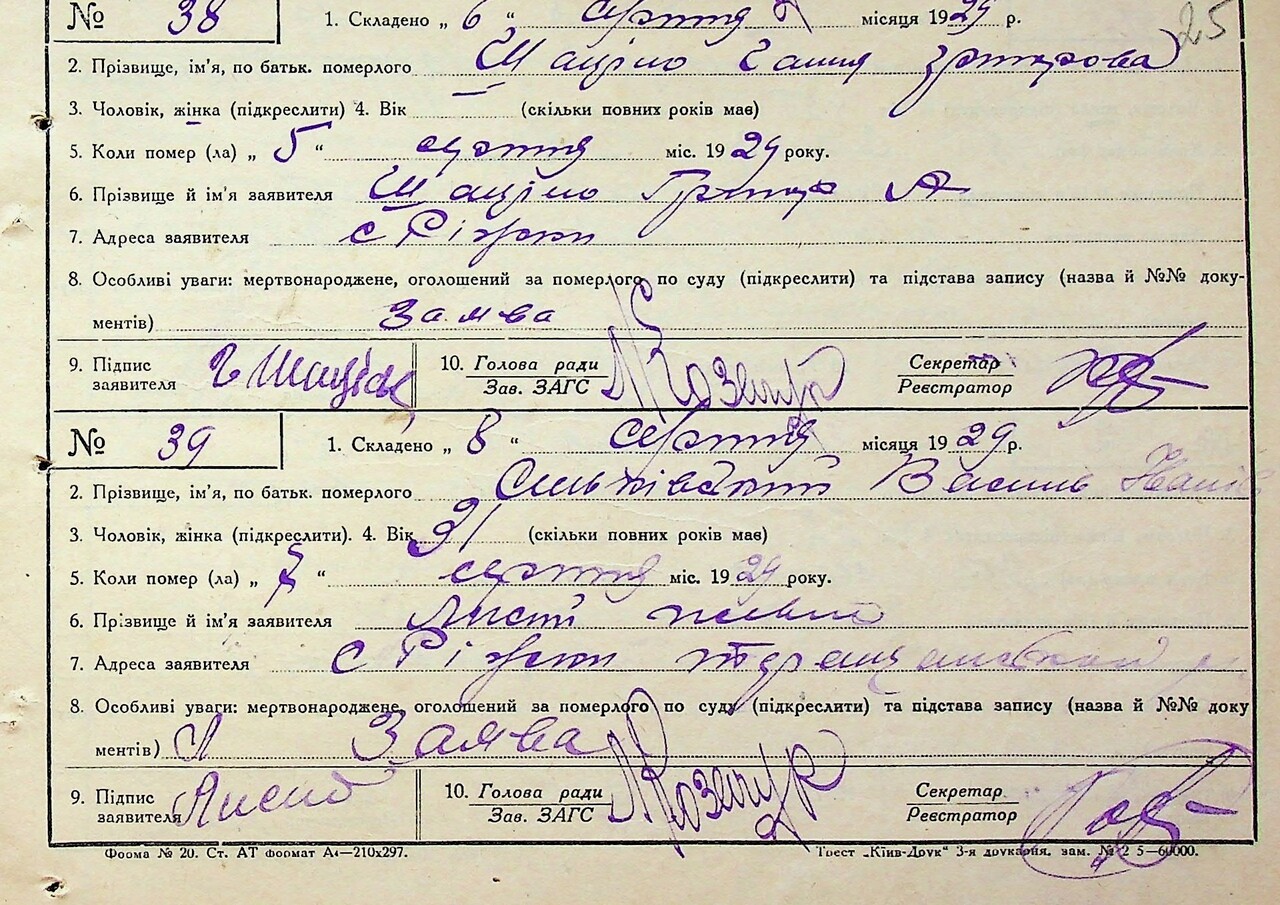 25
№ 38 1. Складено „ 6 “ серпня місяця 1929 р.
2. Прізвище, ім'я, по батьк. померлого Шаціло Ганна
3. Чоловік, жінка (підкреслити) 4. Вік (скільки повних років має)
5. Коли помер (ла) „ 5 “ серпня міс. 1929 року.
6. Прізвище й ім'я заявителя Шаціло А
7. Адреса заявителя с Ріжки
8. Особливі уваги: мертвонароджене, оголошений за померлого по суду (підкреслити) та підстава запису (назва й №№ доку-
ментів) Заява
9. Підпис 10. Голова ради Секретар
заявителя Зав. ЗАГС Реєстратор
№ 39 1. Складено „ 8 “ серпня місяця 1929 р.
2. Прізвище, ім'я, по батьк. померлого Василь
3. Чоловік, жінка (підкреслити). 4. Вік (скільки повних років має)
5. Коли помер (ла) „ 7 “ серпня міс. 1929 року.
6. Прізвище й ім'я заявителя
7. Адреса заявителя с Ріжки
8. Особливі уваги: мертвонароджене, оголошений за померлого по суду (підкреслити) та підстава запису (назва й №№ доку
ментів) Заява
9. Підпис 10. Голова ради Секретар
заявителя Зав. ЗАГС Реєстратор
Форма № 20. Ст. АТ формат А4—210х297. Трест „Київ-Друк“ 3-я друкарня. зам. 5—60000.